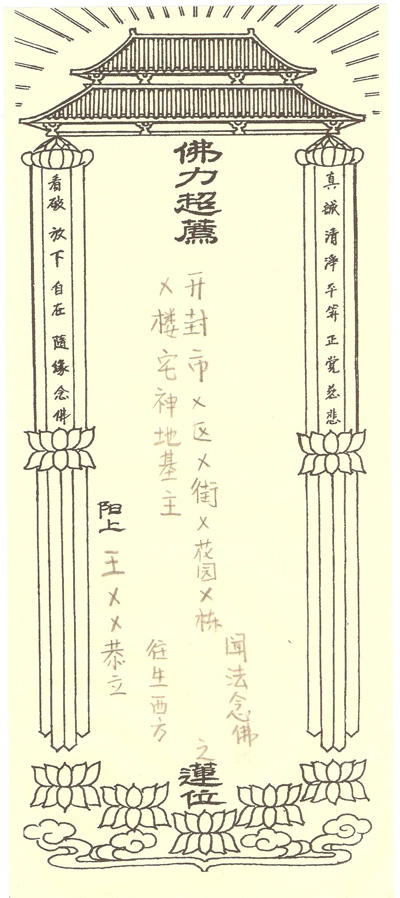 佛力超薦
真誠 清淨 平等 正覚 慈悲
看破 放下 自在 隨緣 念佛
开封市×区×街×花园×栋
×楼宅神地基主
闻法念佛
往生西方
之
蓮位
阳上 王××恭立